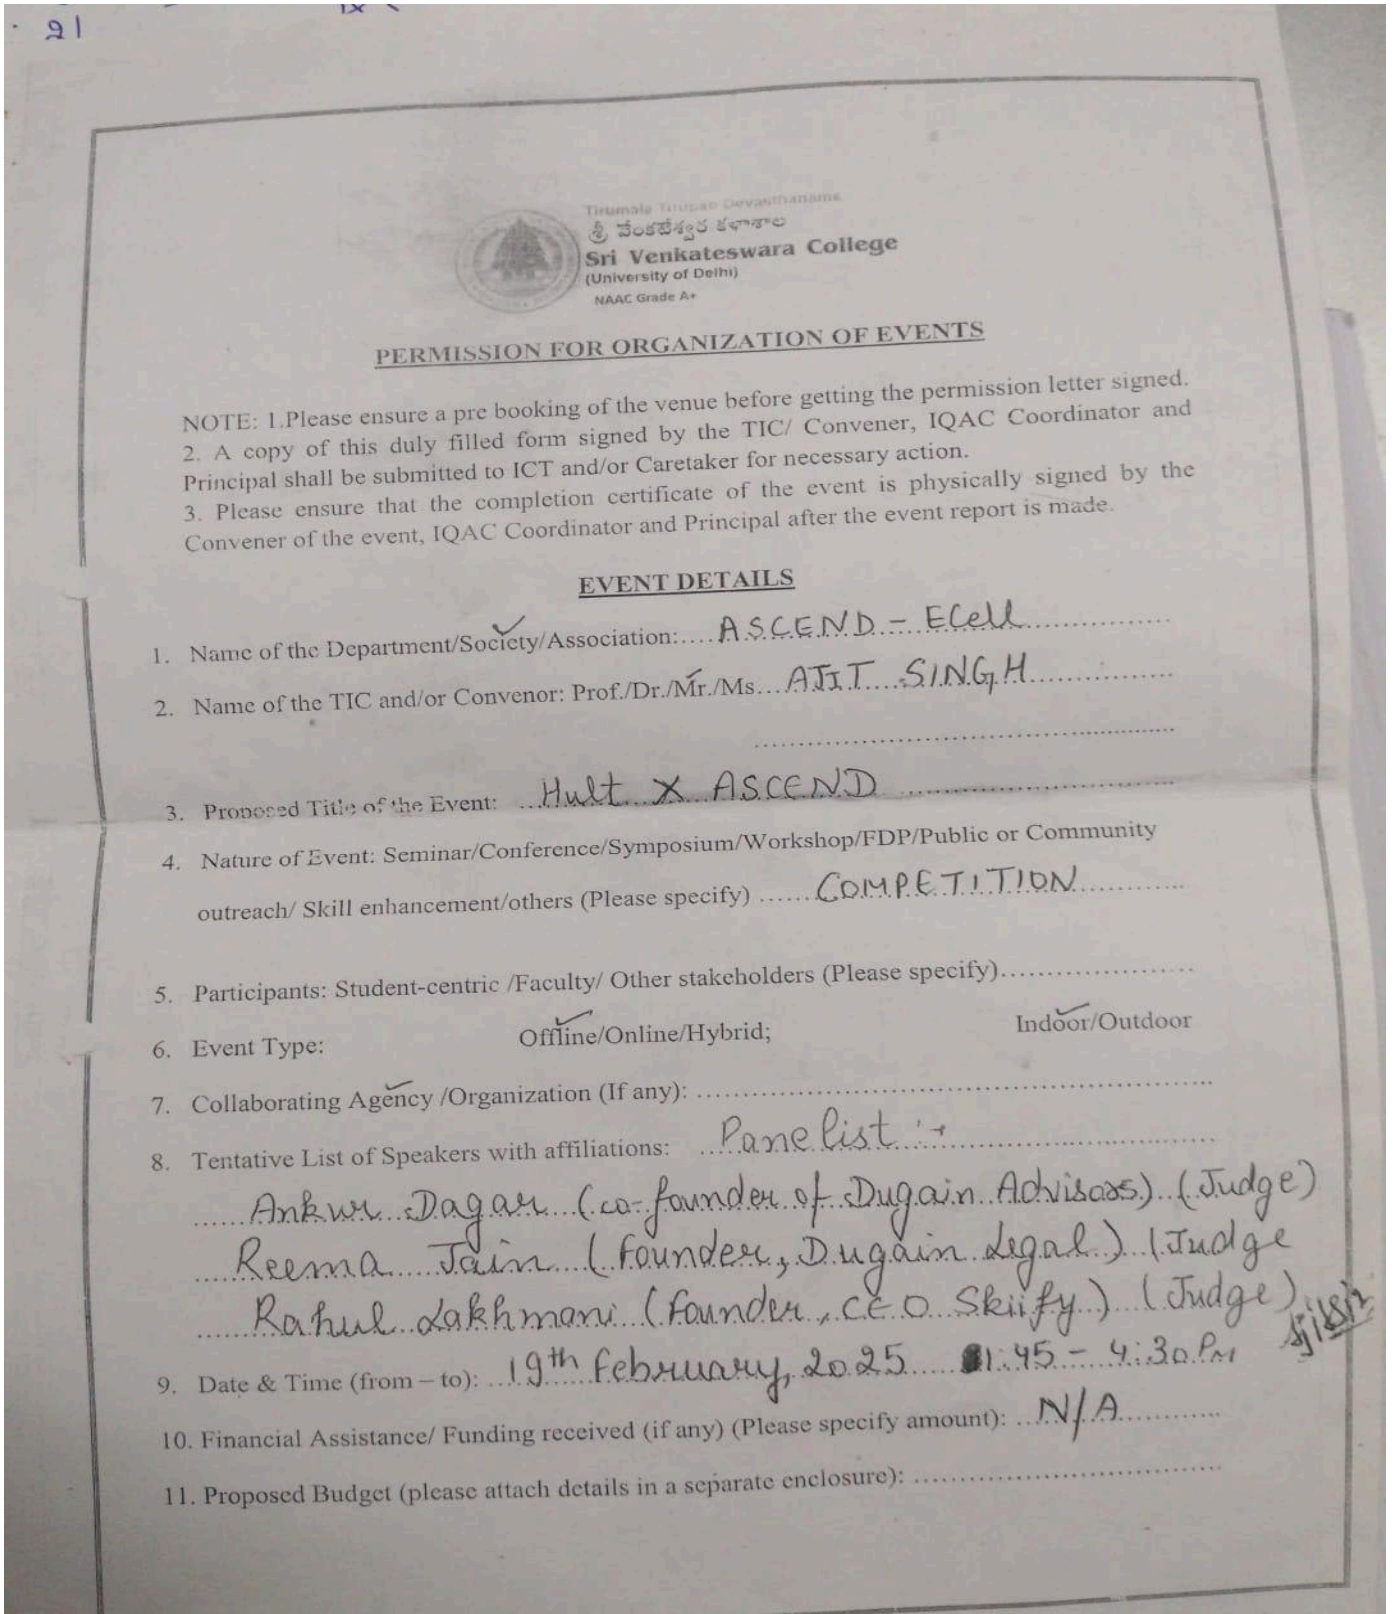 21
Tirumala Tirupati Devasthanams
శ్రీ వేంకటేశ్వర కళాశాల
Sri Venkateswara College
(University of Delhi)
NAAC Grade A+
PERMISSION FOR ORGANIZATION OF EVENTS
NOTE: 1.Please ensure a pre booking of the venue before getting the permission letter signed.
2. A copy of this duly filled form signed by the TIC/ Convener, IQAC Coordinator and
Principal shall be submitted to ICT and/or Caretaker for necessary action.
3. Please ensure that the completion certificate of the event is physically signed by the
Convener of the event, IQAC Coordinator and Principal after the event report is made.
EVENT DETAILS
1. Name of the Department/Society/Association:....ASCEND - ECell
2. Name of the TIC and/or Convenor: Prof./Dr./Mr./Ms...AJIT SINGH
3. Proposed Title of the Event: Hult X ASCEND
4. Nature of Event: Seminar/Conference/Symposium/Workshop/FDP/Public or Community
outreach/ Skill enhancement/others (Please specify) ......COMPETITION
5. Participants: Student-centric /Faculty/ Other stakeholders (Please specify)......................
6. Event Type: Offline/Online/Hybrid; Indoor/Outdoor
7. Collaborating Agency /Organization (If any): ......................
8. Tentative List of Speakers with affiliations: Panelist :-
Ankur Dagar (co-founder of Dugain Advisors) (Judge)
Reema Jain (Founder, Dugain Legal) (Judge
Rahul Lakhmani (Founder, CEO Skiify) (Judge)
9. Date & Time (from – to): 19th February, 2025 1:45 - 4:30 PM
10. Financial Assistance/ Funding received (if any) (Please specify amount): N/A
11. Proposed Budget (please attach details in a separate enclosure): ......................